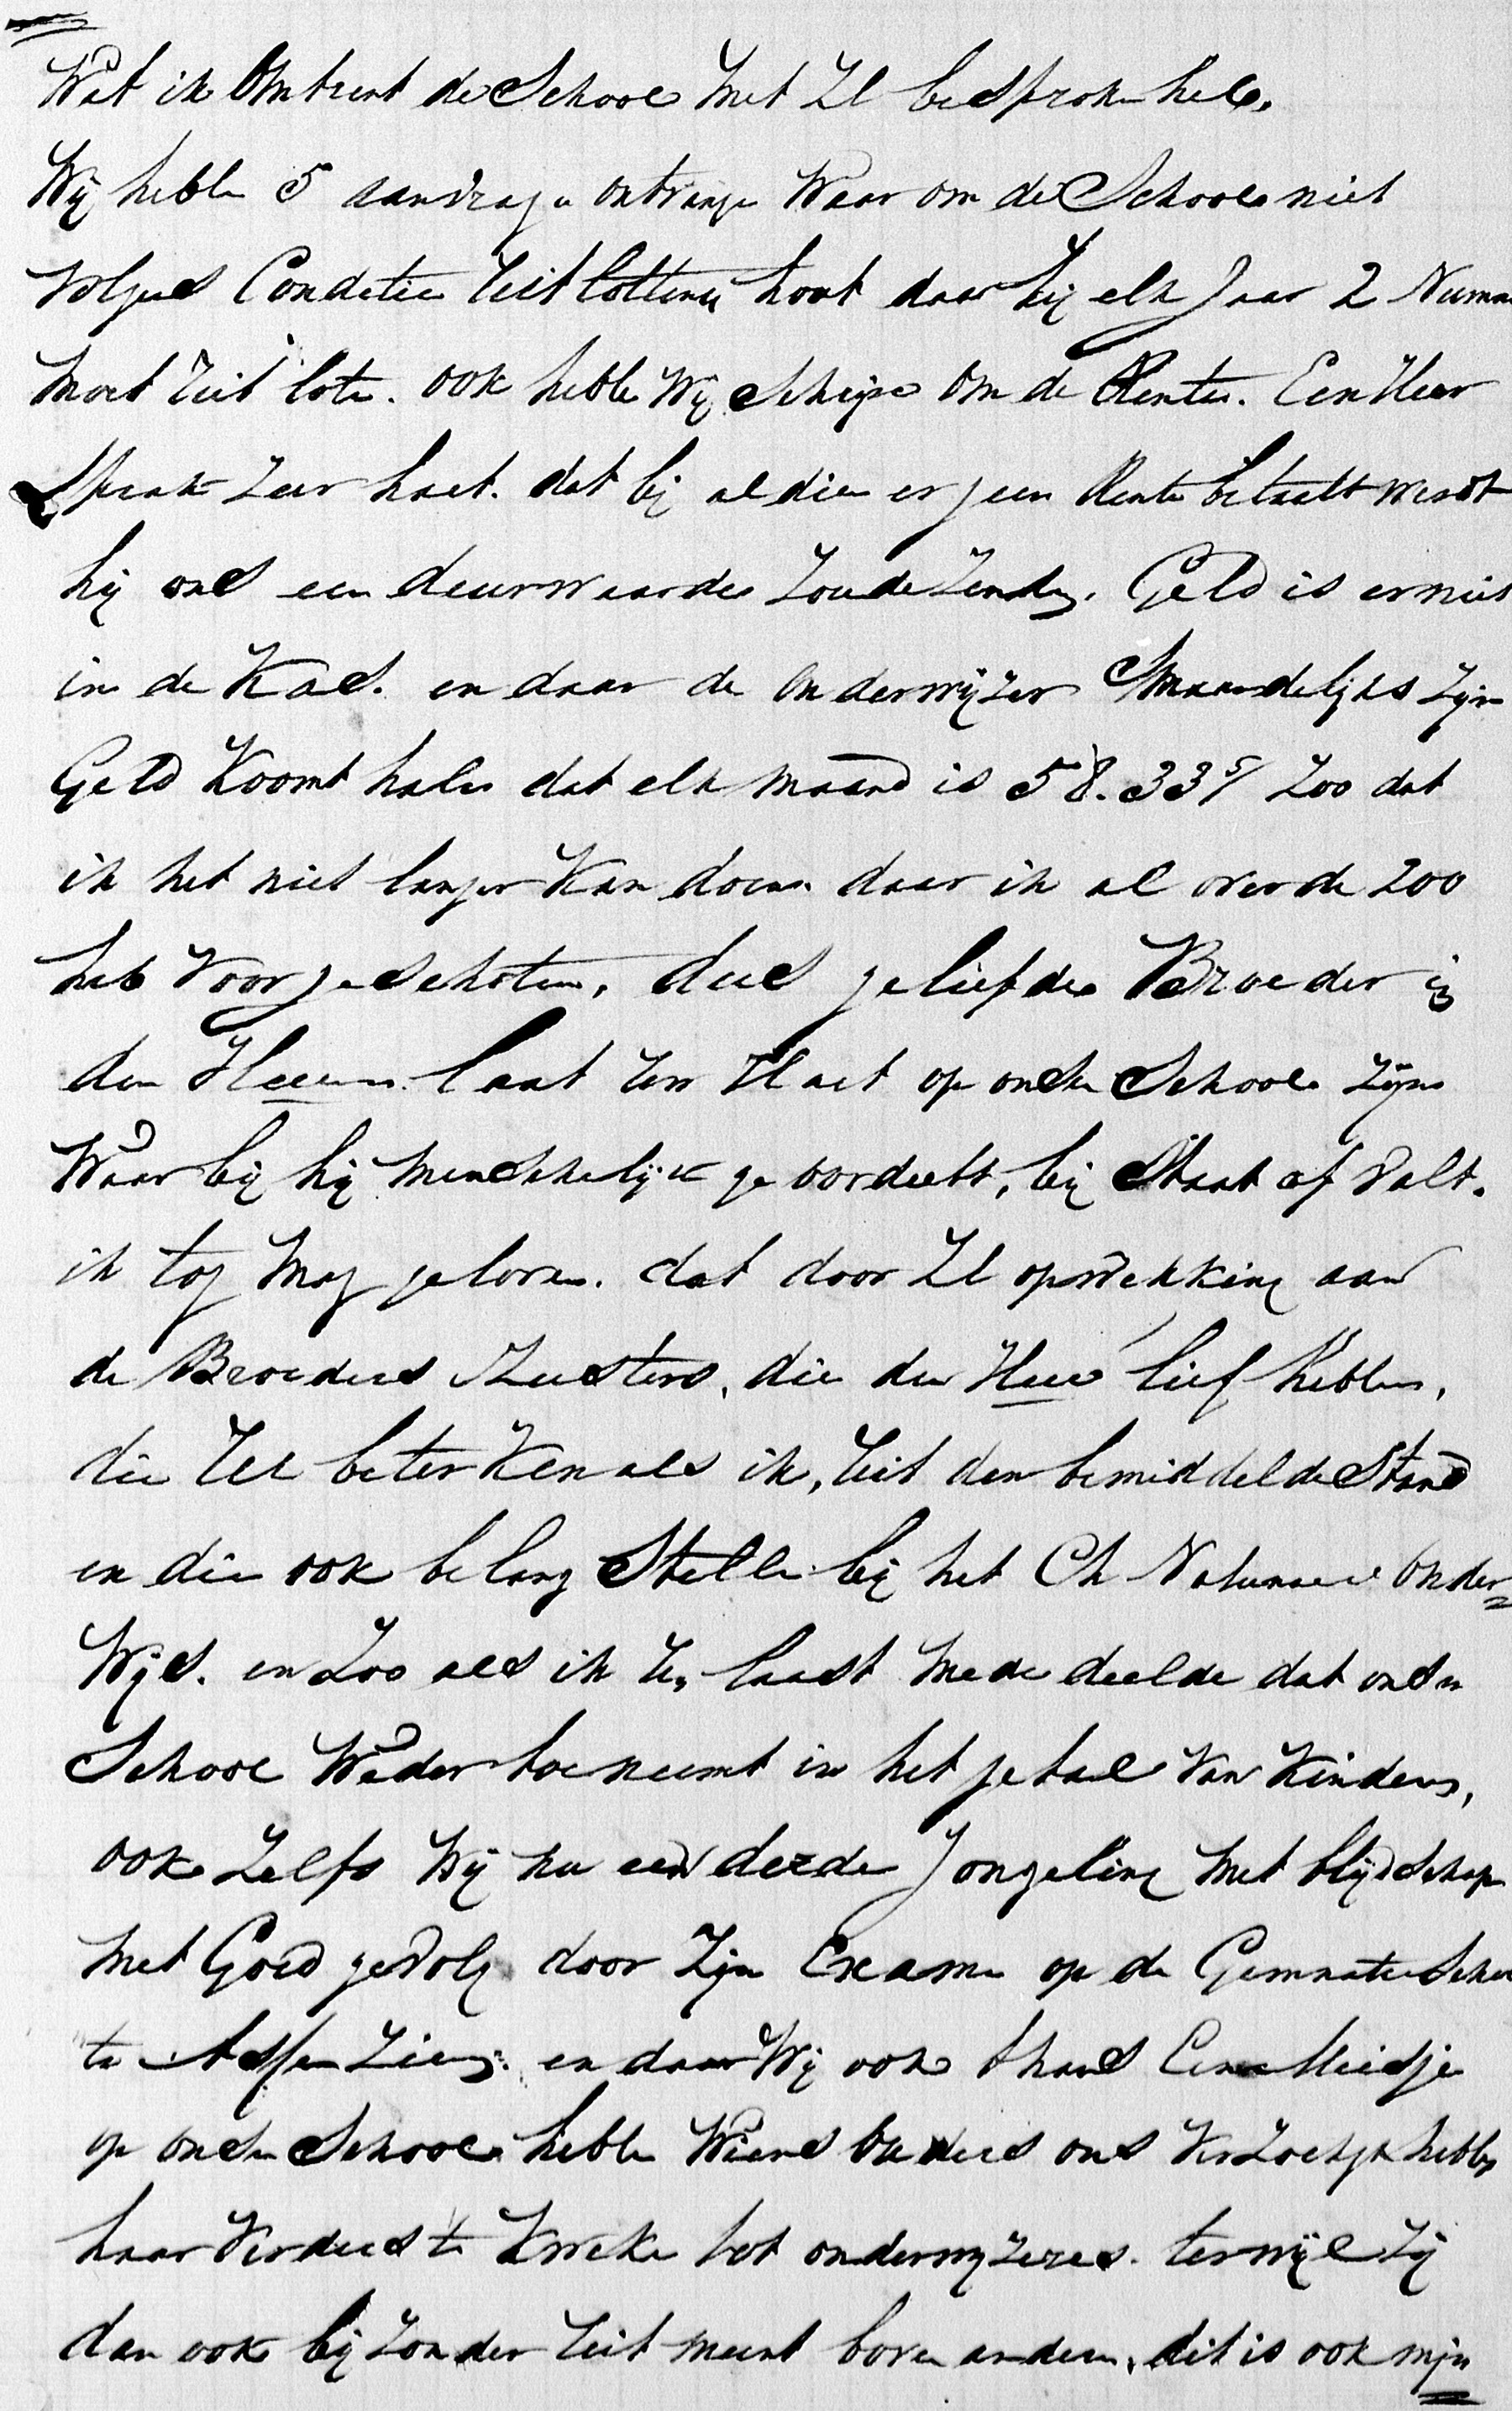 Wat ik Omtrent de School met Ul besproken heb,
Wij hebben 5 aanvragen ontvange Waar om de School niet
volgens Condetie Uitlotting hout daar hij elk Jaar 2 Numm
moet uit lote. ook hebbe Wij om de Rente. Een Heer
sprak zeer hart. dat bij al dien er geen Rente betaalt werdt
hij ons een deurwaarder zoude zenden. Geld is er niet
in de Kas. en daar de Onderwijzer Smaandelijks zijn
Geld Koomt halen dat elk maand is 58.33⁵/ zoo dat
ik het niet langer Kan doen. daar ik al over de 200
heb Voorgeschoten, dus geliefde Broeder in
den Heere. laat uw Hart op onse School zijn
Waar bij hij menschelijk geoordeelt, bij Staat of Valt.
ik tog mag geloven. dat door Ul opwekking aan
de Broeders Zusters, die den Heer lief hebben,
die Ul beter Ken als ik, uit den bemiddelde Stand
en die ook belang Stelle bij het Ch Nationaal Onder=
Wijs. en Zoo als ik U, laast mede deelde dat onse
School Weder toeneemt in het getal van Kinderen,
ook zelfs Wij nu een derde Jongeling met blijdschap
met Goed gevolg door zijn Exame op de Gemeente
te zien. en daar Wij ook thans Een Meisje
op onse School hebbe Wiens Ouders ons Verzocht hebbe
haar Verders te Kweke tot onderwijzeres. terwijl zij
dan ook bijzonder uit meunt boven andere, dit is ook mijn